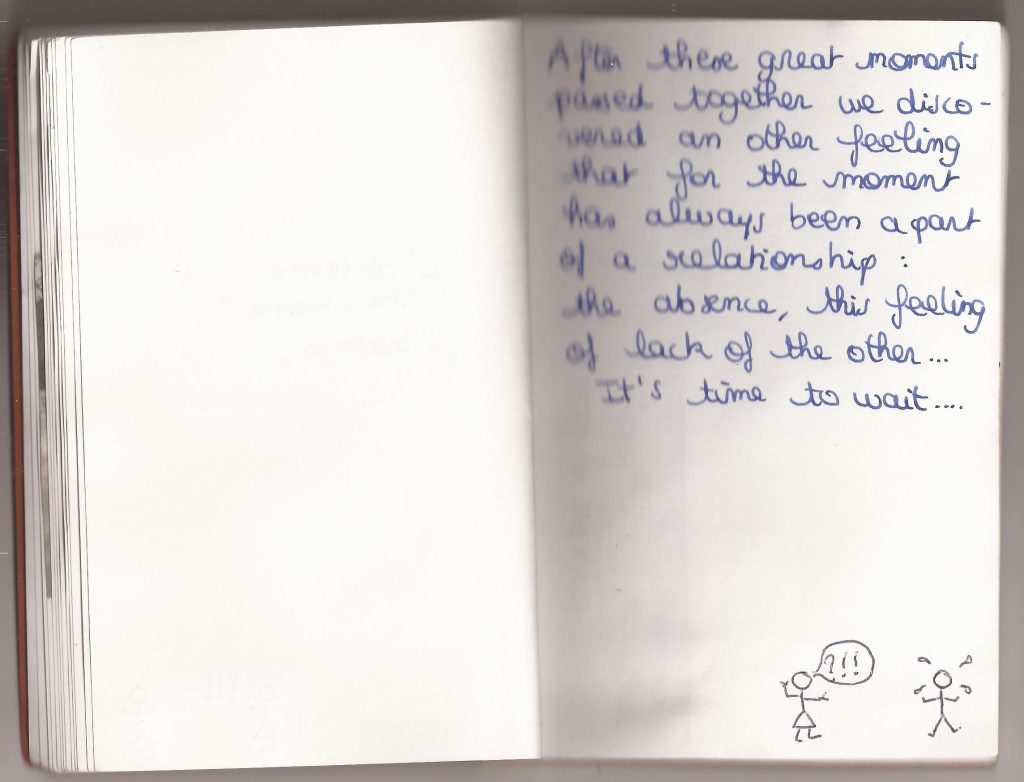 After these great moments
passed together we disco-
vered an other feeling
that for the moment
has always been a part
of a relationship :
the absence, this feeling
of lack of the other...
It's time to wait....
?!!